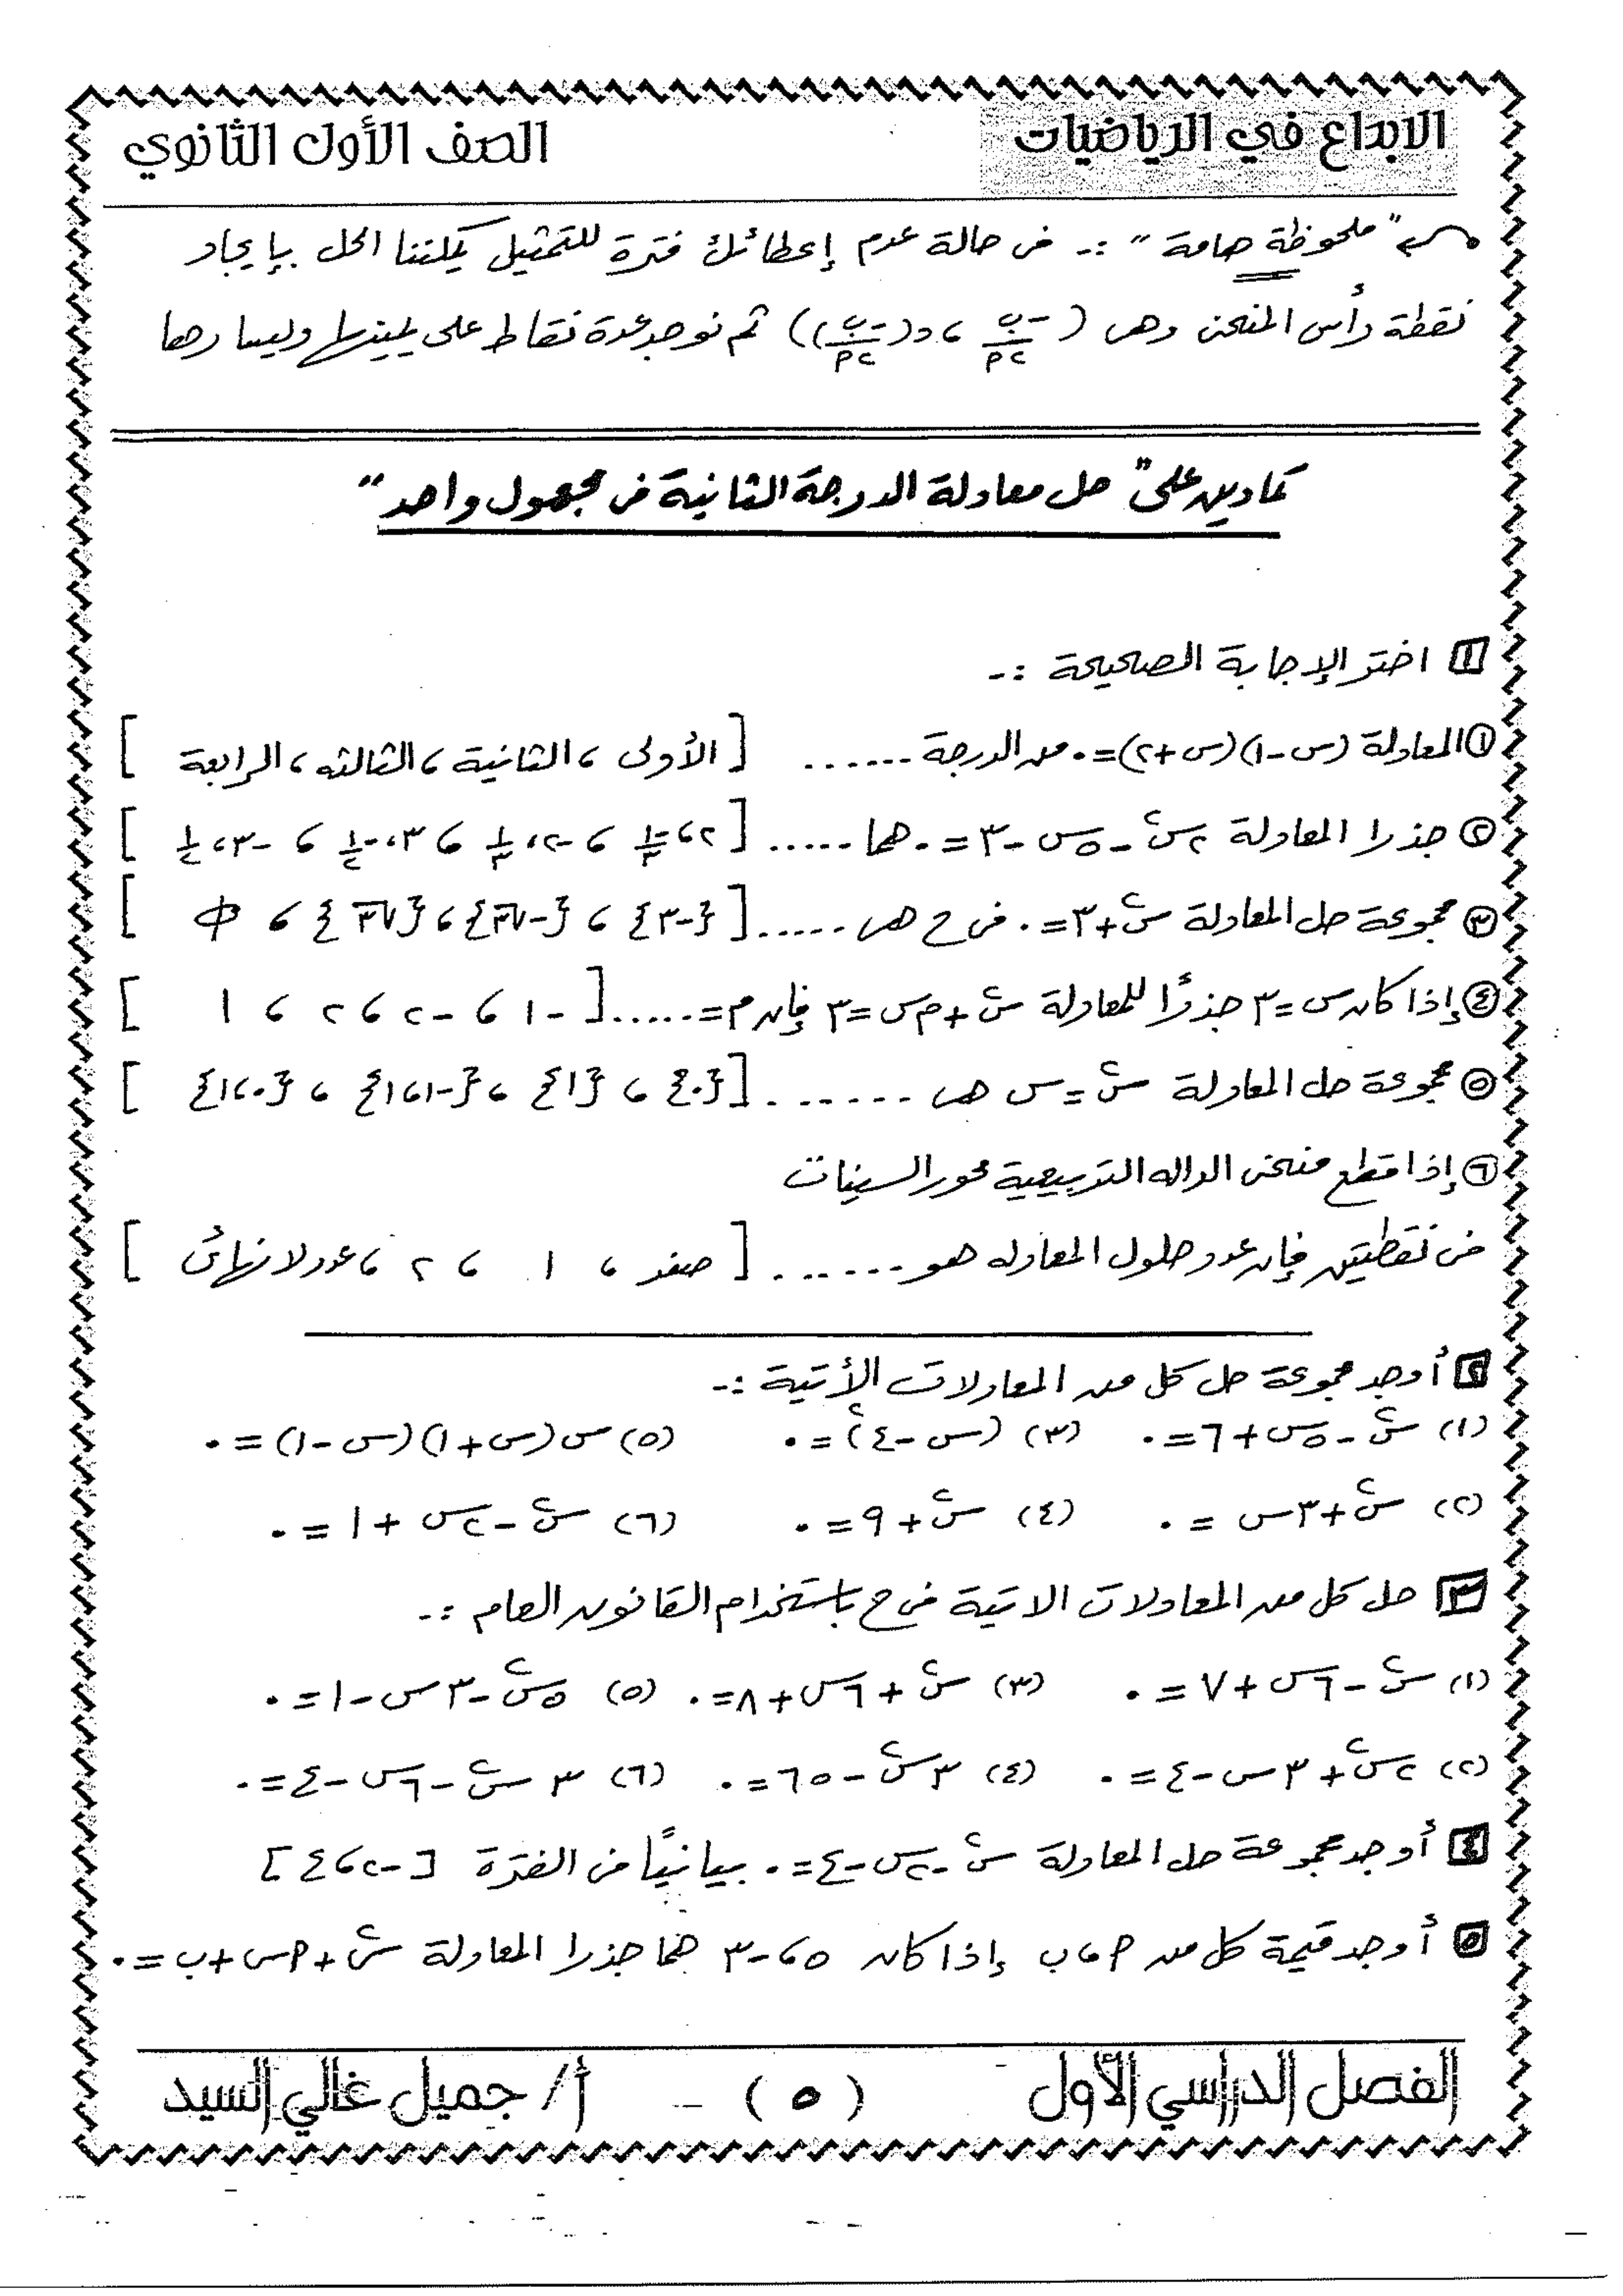 الابداع في الرياضيات
الصف الأول الثانوي
"ملحوظة هامة" :- فى حالة عدم إعطائك فترة للتمثيل يمكننا الحل بإيجاد
نقطة رأس المنحنى وهى (-ب/٢أ ، د(-ب/٢أ)) ثم نوجد عدة نقاط على يمينها ويسارها
تمارين على "حل معادلة الدرجة الثانية فى مجهول واحد"
١ اختر الإجابة الصحيحة :-
① المعادلة (س-١)(س+٢)=٠ من الدرجة ...... [الأولى ، الثانية ، الثالثه ، الرابعة]
② جذرا المعادلة ٢س² -٥س -٣ =٠ هما ..... [٢ ، -١/٣ ، -٢ ، ١/٣ ، ٣ ، -١/٢ ، -٣ ، ١/٢]
③ مجموعة حل المعادلة س²+٣=٠ فى ح هى ..... [{-٣} ، {-√٣} ، {√٣} ، Φ]
④ إذا كان س=٣ جذرًا للمعادلة س²+م س=٣ فإن م=..... [-١ ، -٢ ، ٢ ، ١]
⑤ مجموعة حل المعادلة س² = س هى ....... [{٠} ، {١} ، {-١ ، ١} ، {٠ ، ١}]
⑥ إذا قطع منحنى الداله التربيعية محور السينات
فى نقطتين فإن عدد حلول المعادله هو ....... [صفر ، ١ ، ٢ ، عدد لانهائى]
٢ أوجد مجموعة حل كل من المعادلات الأتية :-
(١) س² -٥س+٦=٠ (٣) (س-٤)²=٠ (٥) س(س+١)(س-١)=٠
(٢) س²+٣س =٠ (٤) س²+٩=٠ (٦) س²-٢س+١=٠
٣ حل كل من المعادلات الاتية فى ح باستخدام القانون العام :-
(١) س²-٦س+٧=٠ (٣) س²+٦س+٨=٠ (٥) ٥س²-٣س-١=٠
(٢) ٢س²+٣س-٤=٠ (٤) ٣س²-٦٥=٠ (٦) ٣س²-٦س-٤=٠
٤ أوجد مجموعة حل المعادلة س²-٢س-٤=٠ بيانيًا فى الفترة [-٢ ، ٤]
٥ أوجد قيمة كل من أ ، ب إذا كان ٥ ، -٣ هما جذرا المعادلة س²+أس+ب=٠
الفصل الدراسي الأول
(٥)
أ/ جميل غالي السيد